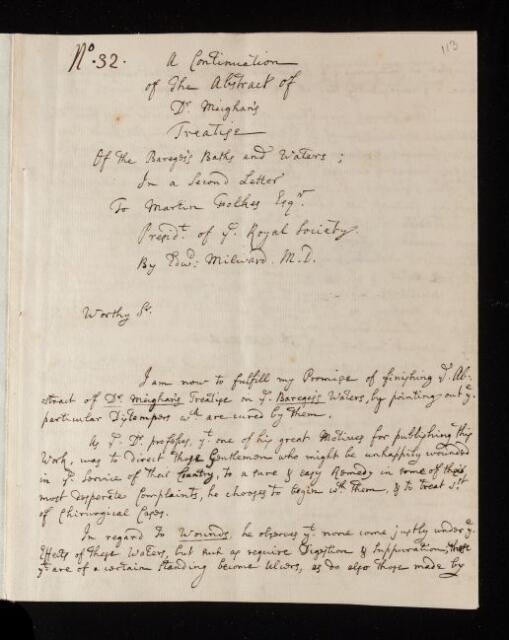 No. 32.
113
A Continuation
of the Abstract of
Dr. Meighan's
Treatise
Of the Barege's Baths and Waters;
In a Second Letter
To Martin Folkes Esqr.
Presidt. of ye. Royal Society.
By Edwd: Milward. M.D.
Worthy Sr.
I am now to fulfill my Promise of finishing ye. Ab-
stract of Dr. Meighan's Treatise on ye. Barege's Waters, by pointing out ye.
particular Distempers wch. are cured by them.
As ye. Dr. professes, yt. one of his great Motives for publishing this
Work, was to direct those Gentlemen who might be unhappily wounded
in ye. Service of their Country, to a sure & easy Remedy in some of their
most desperate Complaints, he chooses to begin wth. them, & to treat 1st.
of Chirurgical Cases.
In regard to Wounds, he observes yt. none come justly under ye.
Effects of these Waters, but such as require Digestion & Suppuration, those
yt. are of a certain standing become Ulcers, as do also those made by